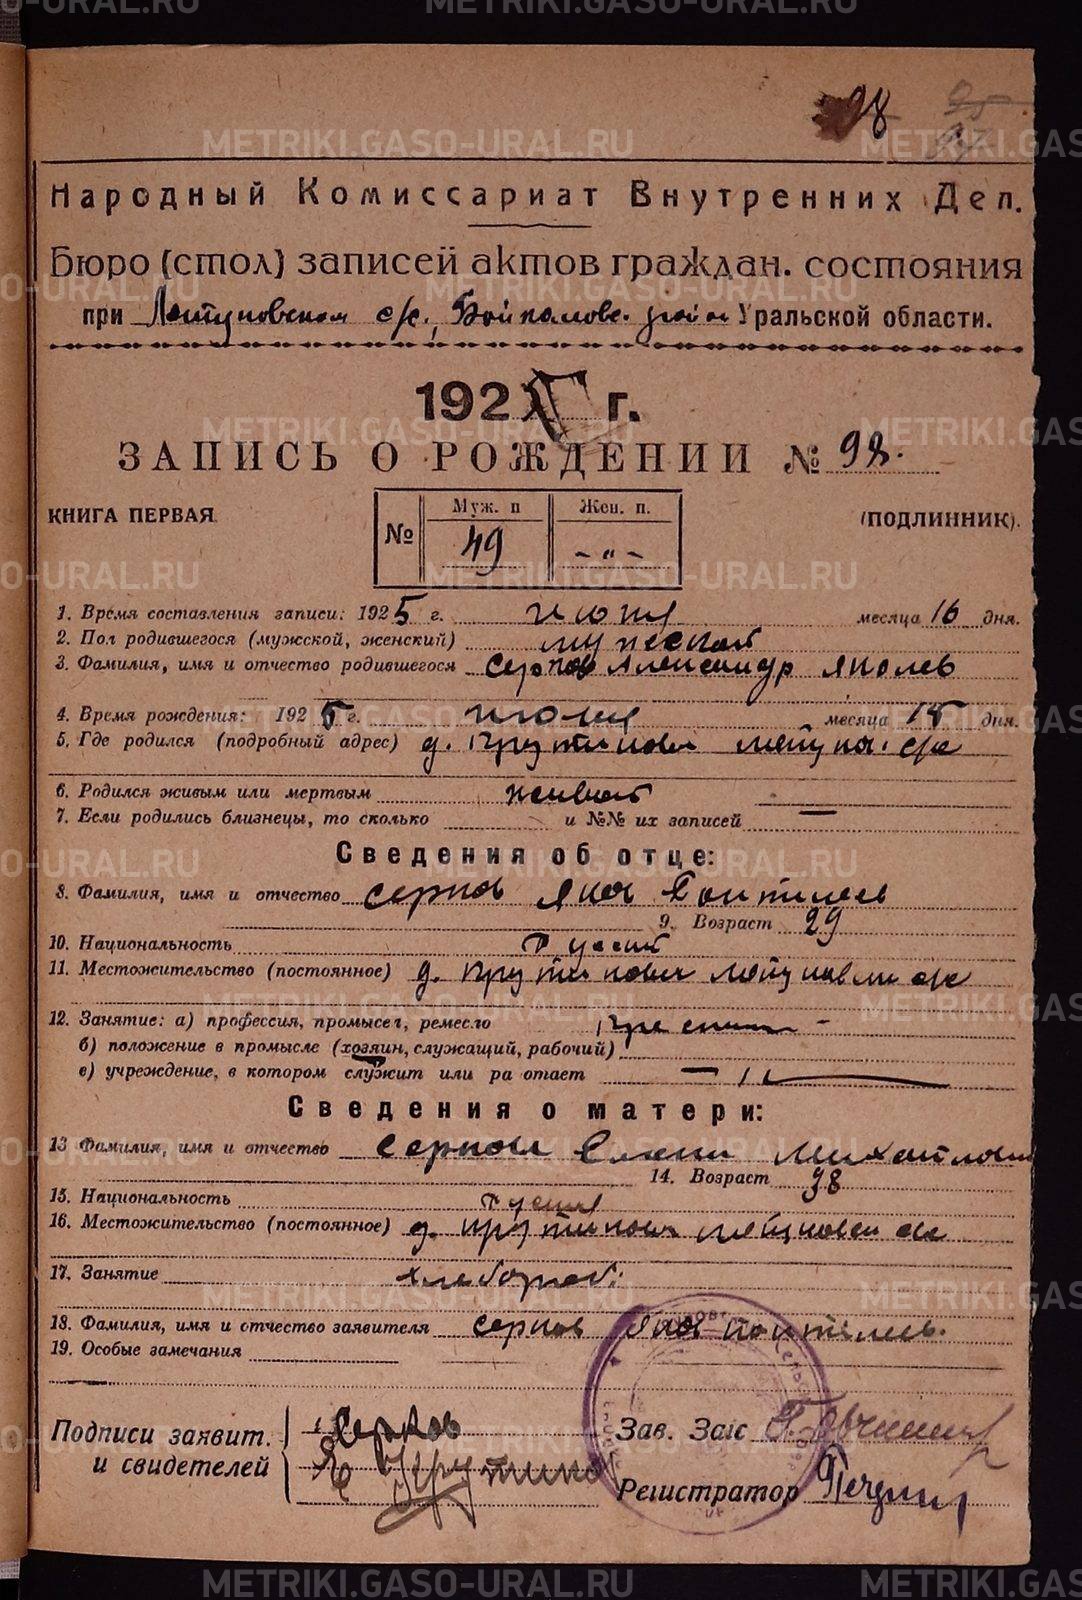 98
95
97
Народный Комиссариат Внутренних Дел.
Бюро (стол) записей актов граждан. состояния
при с/с., район Уральской области.
1925 г.
ЗАПИСЬ О РОЖДЕНИИ № 98.
КНИГА ПЕРВАЯ.
(ПОДЛИННИК).
№
Муж. п
Жен. п.
49
- „ -
1. Время составления записи: 1925 г. июля месяца 16 дня.
2. Пол родившегося (мужской, женский) мужской
3. Фамилия, имя и отчество родившегося Серков Александр Яколев
4. Время рождения: 1925 г. июля месяца 15 дня.
5. Где родился (подробный адрес) д. с/с
6. Родился живым или мертвым живой
7. Если родились близнецы, то сколько и №№ их записей —
Сведения об отце:
8. Фамилия, имя и отчество Серков Яков
9. Возраст 29
10. Национальность Русский
11. Местожительство (постоянное) д. с/с
12. Занятие: а) профессия, промысел, ремесло
б) положение в промысле (хозяин, служащий, рабочий)
в) учреждение, в котором служит или ра отает
Сведения о матери:
13 Фамилия, имя и отчество Елена
14. Возраст 38
15. Национальность
16. Местожительство (постоянное) д. с/с
17. Занятие хлебороб.
18. Фамилия, имя и отчество заявителя Серков Яков
19. Особые замечания
Подписи заявит.
и свидетелей
Серков
Зав. Загс
Регистратор
METRIKI.GASO-URAL.RU